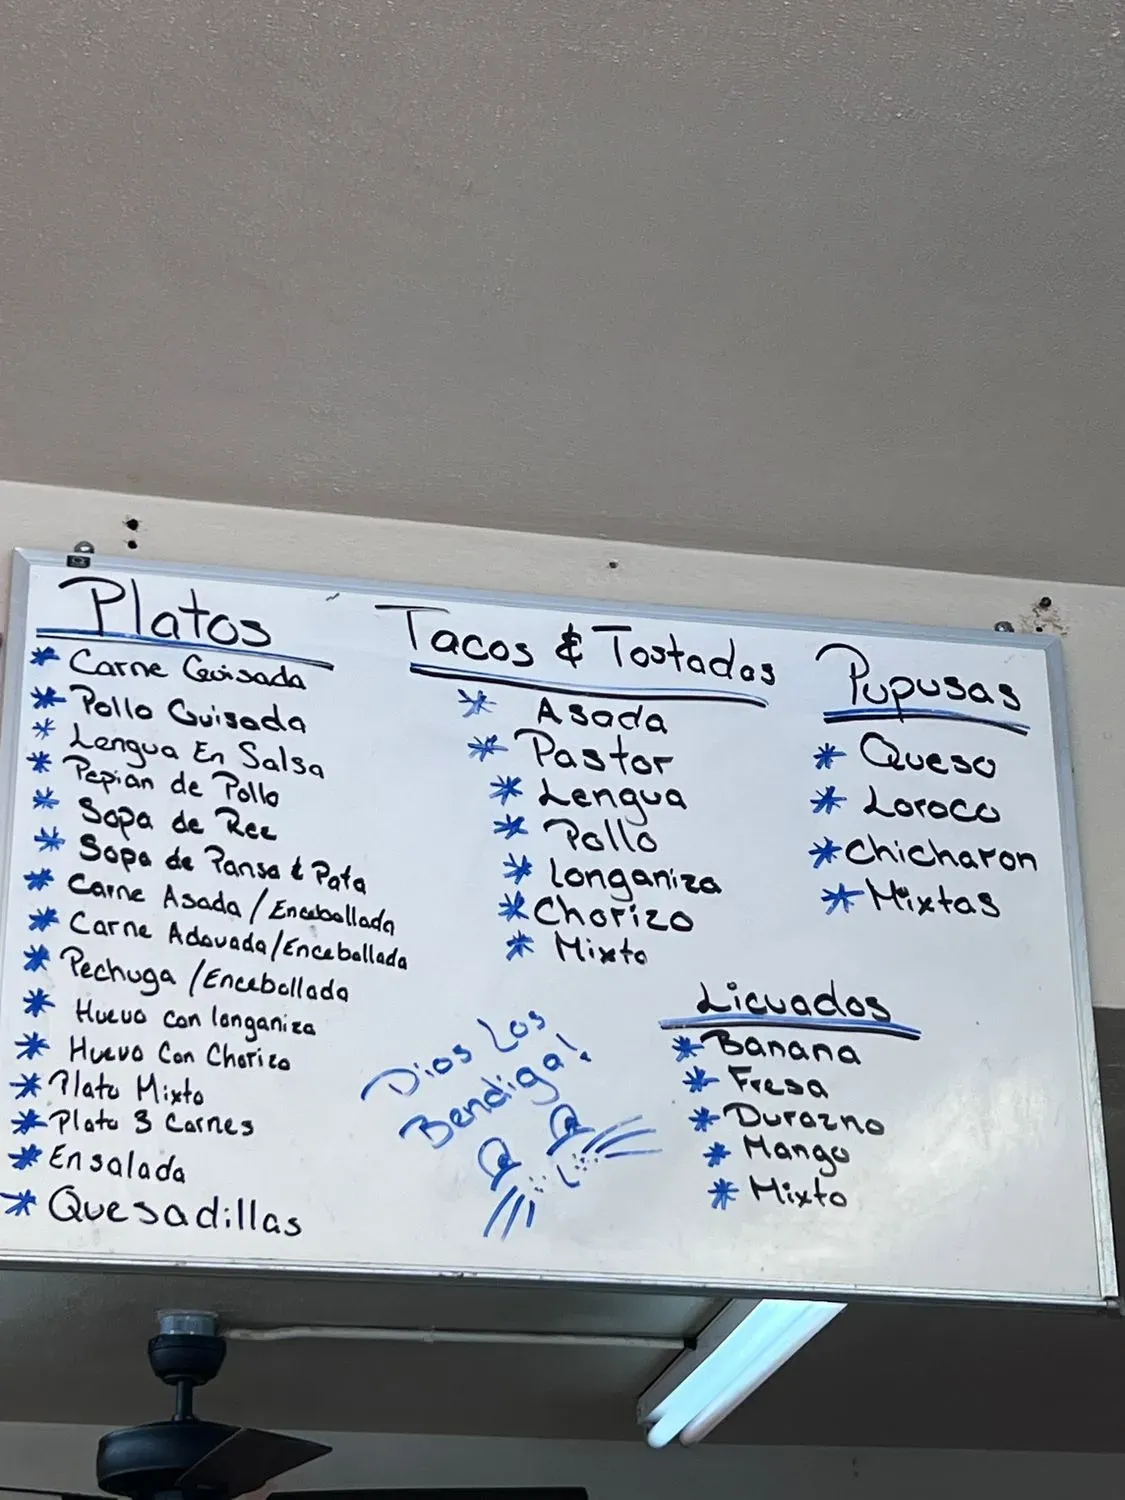 Platos
* Carne Guisada
* Pollo Guisada
* Lengua En Salsa
* Pepian de Pollo
* Sopa de Rez
* Sopa de Pansa & Pata
* Carne Asada / Encebollada
* Carne Adovada/Encebollada
* Pechuga /Encebollada
* Huevo con longaniza
* Huevo Con Chorizo
* Plato Mixto
* Plato 3 Carnes
* Ensalada
* Quesadillas
Tacos & Tostadas
* Asada
* Pastor
* Lengua
* Pollo
* Longaniza
* Chorizo
* Mixto
Pupusas
* Queso
* Loroco
* Chicharon
* Mixtas
Licuados
* Banana
* Fresa
* Durazno
* Mango
* Mixto
Dios Los
Bendiga!